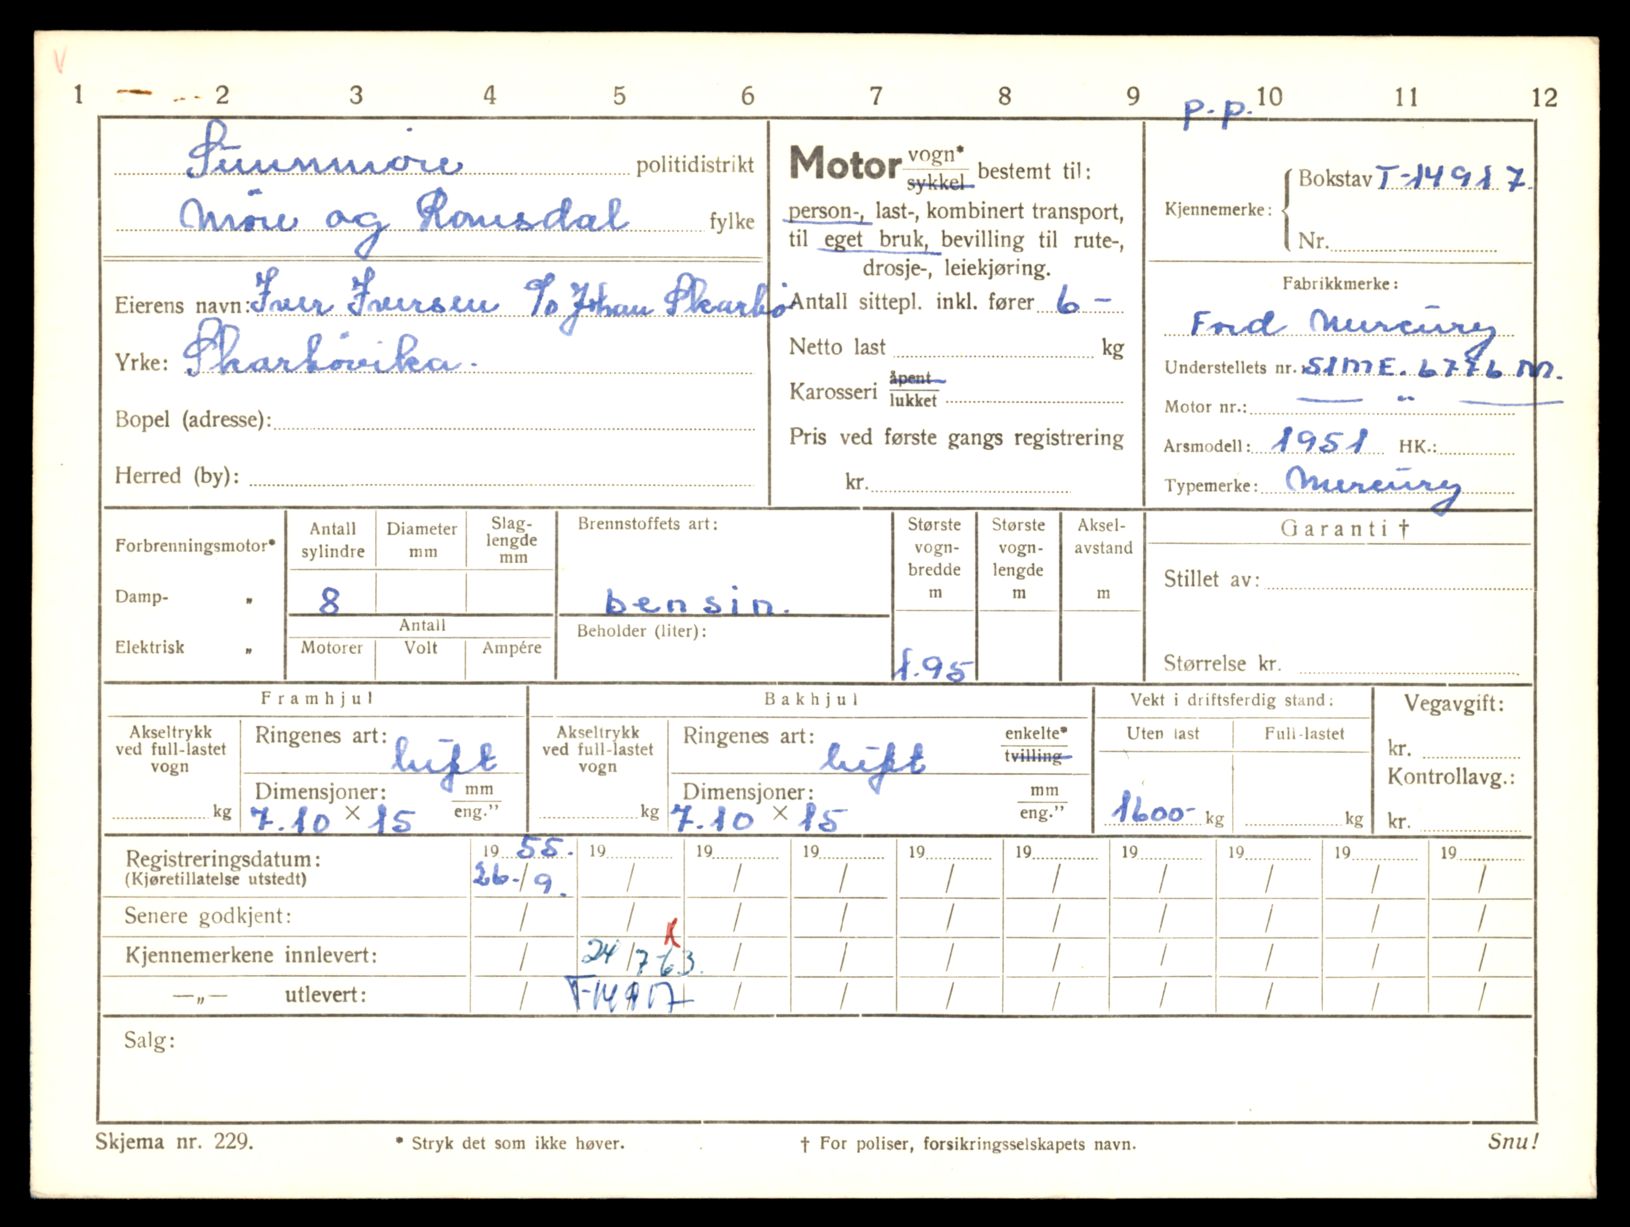 V
1 2 3 4 5 6 7 8 9 10 11 12
p.p.
Sunnmøre politidistrikt
Møre og Romsdal fylke
Eierens navn: Iver Iversen c/o Johan Skarbø
Yrke: Skarbøvika.
Bopel (adresse):
Herred (by):
Motor vogn*
sykkel
bestemt til:
person-, last-, kombinert transport,
til eget bruk, bevilling til rute-,
drosje-, leiekjøring.
Antall sittepl. inkl. fører 6 -
Netto last kg
Karosseri åpent
lukket
Pris ved første gangs registrering
kr.
Kjennemerke: Bokstav T-14917.
Nr.
Fabrikkmerke:
Ford Mercury
Understellets nr. 51ME. 6776 M.
Motor nr.: — " —
Arsmodell: 1951 HK.:
Typemerke: Mercury
Forbrenningsmotor*
Damp- „
Elektrisk „
Antall sylindre
Diameter mm
Slag-lengde mm
8
Antall
Motorer Volt Ampére
Brennstoffets art:
bensin.
Beholder (liter):
Største vogn-bredde m
1.95
Største vogn-lengde m
Aksel-avstand m
Garanti †
Stillet av:
Størrelse kr.
Framhjul
Akseltrykk
ved full-lastet
vogn
kg
Ringenes art: luft
Dimensjoner: mm
eng.”
7.10 × 15
Bakhjul
Akseltrykk
ved full-lastet
vogn
kg
Ringenes art: luft
enkelte*
tvilling
Dimensjoner: mm
eng.”
7.10 × 15
Vekt i driftsferdig stand:
Uten last Full-lastet
1600- kg kg
Vegavgift:
kr.
Kontrollavg.:
kr.
Registreringsdatum: 19 55. 19 19 19 19 19 19 19 19 19
(Kjøretillatelse utstedt) 26-/9. / / / / / / / / /
Senere godkjent: / / / / / / / / / /
Kjennemerkene innlevert: / 24/7-63. / / / / / / / /
—„— utlevert: / T-14917 / / / / / / / /
Salg:
Skjema nr. 229.
* Stryk det som ikke høver.
† For poliser, forsikringsselskapets navn.
Snu!